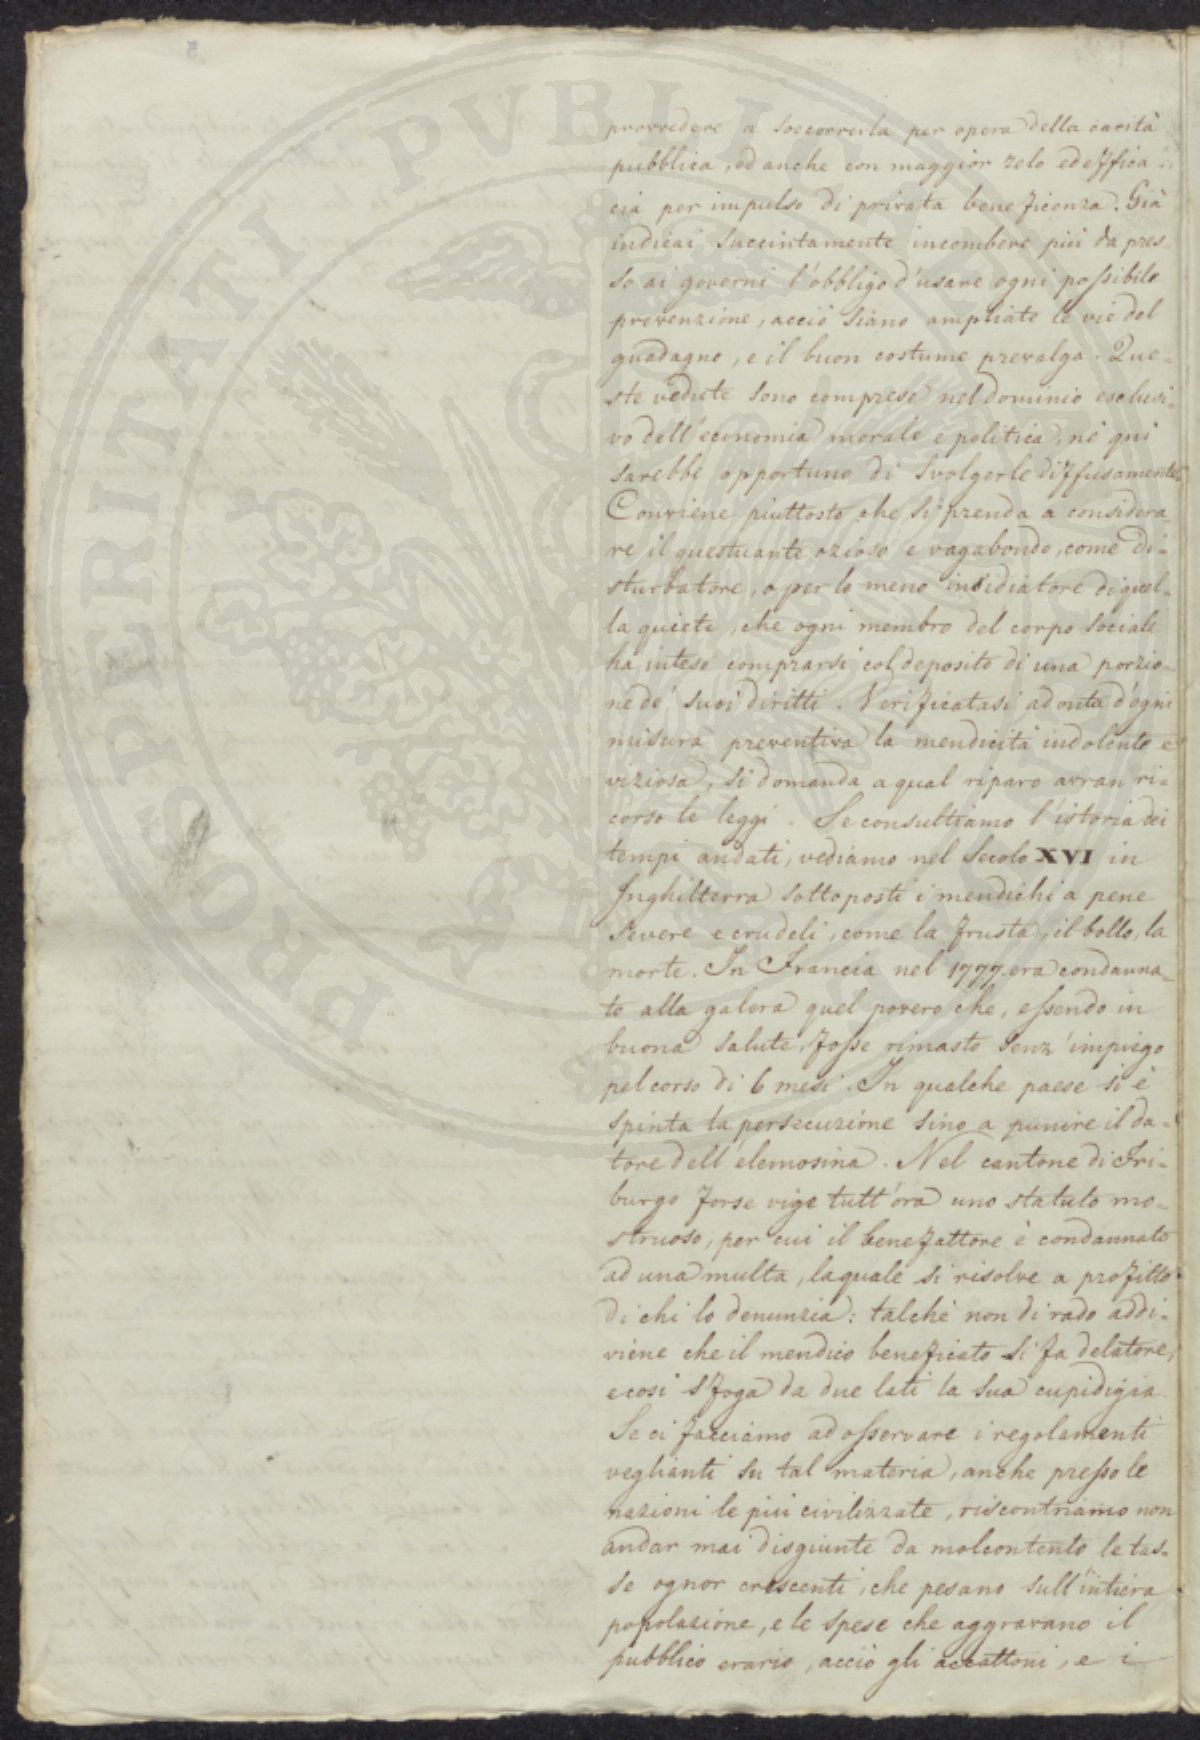 provvedere a soccorrerla per opera della carità
pubblica, ed anche con maggior zelo ed effica
cia per impulso di privata beneficenza. Già
indicai succintamente incombere più da pres-
so ai governi l'obbligo d'usare ogni possibile
prevenzione, acciò siano ampliate le vie del
guadagno, e il buon costume prevalga. Que-
ste vedute sono comprese nel dominio esclusi-
vo dell'economia morale e politica, nè quì
sarebbe opportuno di svolgerle diffusamente.
Conviene piuttosto che si prenda a considera-
re il questuante ozioso e vagabondo, come di-
sturbatore, o per lo meno insidiatore di quel-
la quiete, che ogni membro del corpo sociale
ha inteso comprarsi col deposito di una porzio-
ne de' suoi diritti. Verificatasi ad onta d'ogni
misura preventiva la mendicità indolente e
viziosa, si domanda a qual riparo avran ri-
corso le leggi. Se consultiamo l'istoria dei
tempi andati, vediamo nel secolo XVI in
Inghilterra sottoposti i mendichi a pene
severe e crudeli, come la frusta, il bollo, la
morte. In Francia nel 1777 era condanna-
to alla galera quel povero che, essendo in
buona salute, fosse rimasto senz'impiego
pel corso di 6 mesi. In qualche paese si è
spinta la persecuzione sino a punire il da-
tore dell'elemosina. Nel cantone di Fri-
burgo forse vige tutt'ora uno statuto mo-
struoso, per cui il benefattore è condannato
ad una multa, la quale si risolve a profitto
di chi lo denunzia: talchè non di rado addi-
viene che il mendico beneficato si fa delatore,
e così sfoga da due lati la sua cupidigia.
Se ci facciamo ad osservare i regolamenti
veglianti su tal materia, anche presso le
nazioni le più civilizzate, riscontriamo non
andar mai disgiunte da molcontento le tas-
se ognor crescenti, che pesano sull'intiera
popolazione, e le spese che aggravano il
pubblico erario, acciò gli accattoni, e i
PROSPERITATI PVBLICAE